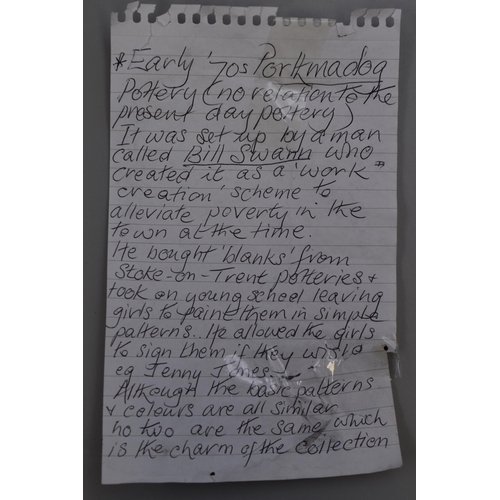 *Early '70s Portmadog
Pottery (no relation to the
present day pottery)
It was set up by a man
called Bill Swann who
created it as a 'work
creation' scheme to
alleviate poverty in the
town at the time.
He bought 'blanks' from
Stoke-on-Trent potteries +
took on young school leaving
girls to paint them in simple
patterns.. He allowed the girls
to sign them if they wished
eg Jenny Jones.
Although the basic patterns
+ colours are all similar
no two are the same which
is the charm of the collection